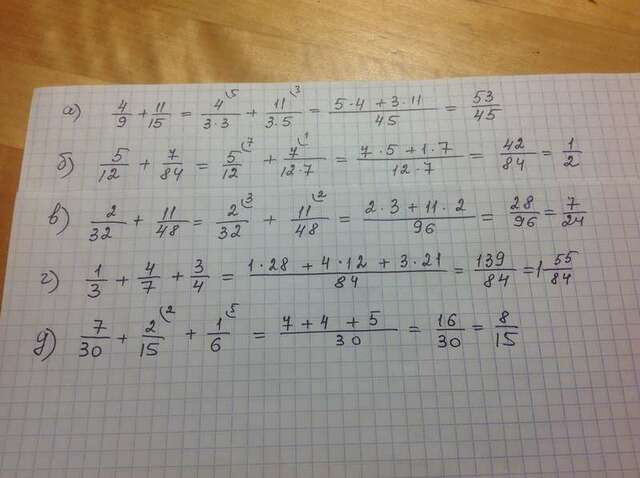 а) 4/9 + 11/15 = 4/3·3 (5 + 11/3·5 (3 = 5·4 + 3·11/45 = 53/45
б) 5/12 + 7/84 = 5/12 (7 + 7/12·7 (1 = 7·5 + 1·7/12·7 = 42/84 = 1/2
в) 2/32 + 11/48 = 2/32 (3 + 11/48 (2 = 2·3 + 11·2/96 = 28/96 = 7/24
г) 1/3 + 4/7 + 3/4 = 1·28 + 4·12 + 3·21/84 = 139/84 = 1 55/84
д) 7/30 + 2/15 (2 + 1/6 (5 = 7 + 4 + 5/30 = 16/30 = 8/15